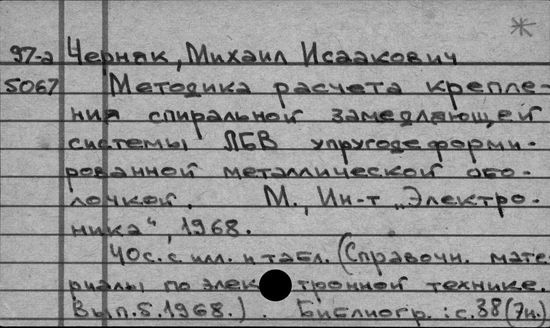 *
97-2 Черняк, Михаил Исаакович
5067 Методика расчета крепле-
ния спиральной замедляющей
системы ЛБВ упругодеформи-
рованной металлической обо-
лочкой. М., Ин-т „Электро-
ника“, 1968.
40с. с илл. и табл. (Справочн. мате-
риалы по электронной технике.
Вып. 5. 1968.). Библиогр.: с. 38 (7н.)